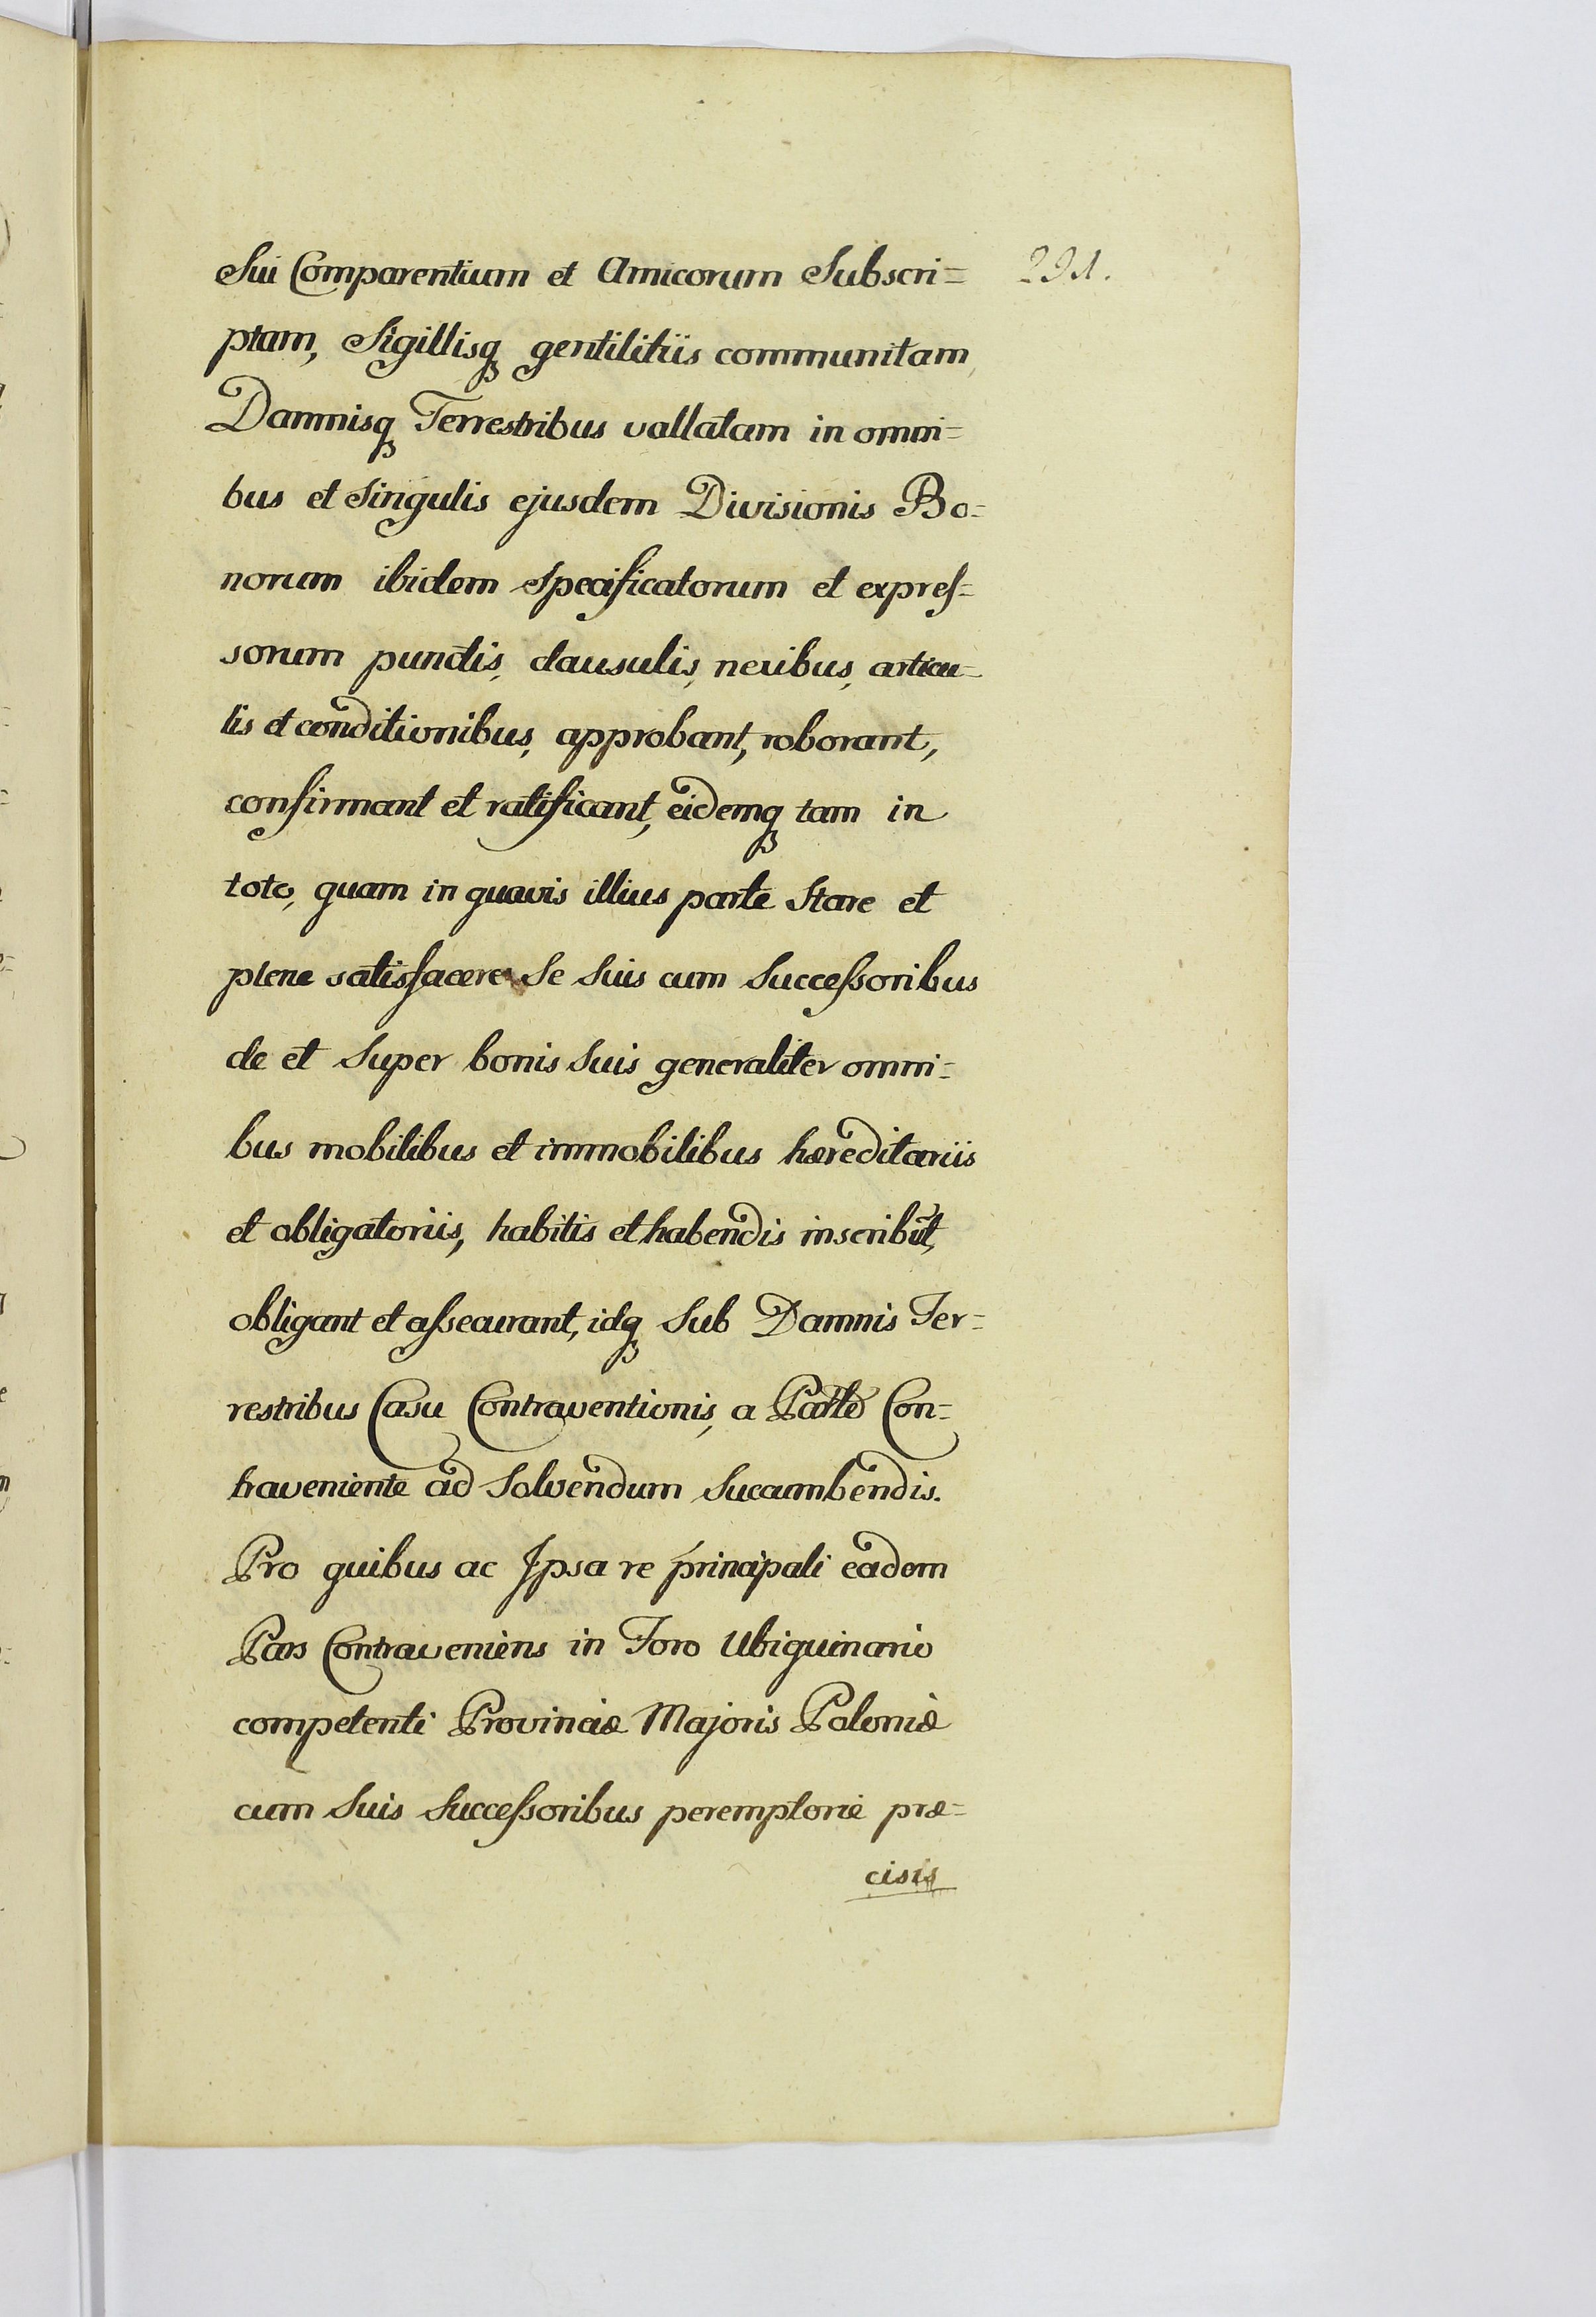 Sui Comparentium et Amicorum Subscri=
291.
ptam, Sigillisq gentilitiis communitam,
Damnisq Terrestribus vallatam in omni=
bus et Singulis ejusdem Divisionis Bo=
norum ibidem Specificatorum et expreſ=
sorum punctis, clausulis, nexibus, articu=
lis et conditionibus, approbant, roborant,
confirmant et ratificant, eidemq tam in
toto, quam in quavis illius parte Stare et
plene satisfacere Se Suis cum Succeſsoribus
de et Super bonis Suis generaliter omni=
bus mobilibus et immobilibus hæreditariis
et obligatoriis, habitis et habendis inscribūt,
obligant et aſsecurant, idq Sub Damnis Ter=
restribus Casu Contraventionis, a Parte Con=
traveniente ad Solvendum Succumbendis.
Pro quibus ac Ipsa re principali eadem
Pars Contraveniens in Foro Ubiquinario
competenti Provinciæ Majoris Poloniæ
cum Suis Succeſsoribus peremptorie præ=
cisis